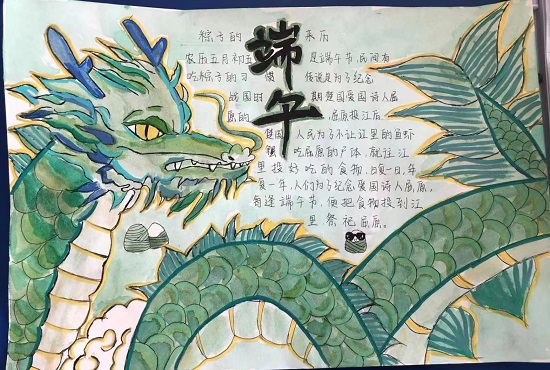 粽子的 来历
端午
农历五月初五 是端午节,民间有
吃粽子的习 惯 传说是为了纪念
战国时 期楚国爱国诗人屈
原的 屈原投江后
楚国 人民为了不让江里的鱼虾
蟹 吃屈原的尸体,就往江
里投好吃的食物,日复一日,年
复一年,人们为了纪念爱国诗人屈原,
每逢端午节,便把食物投到江
里祭祀屈原。